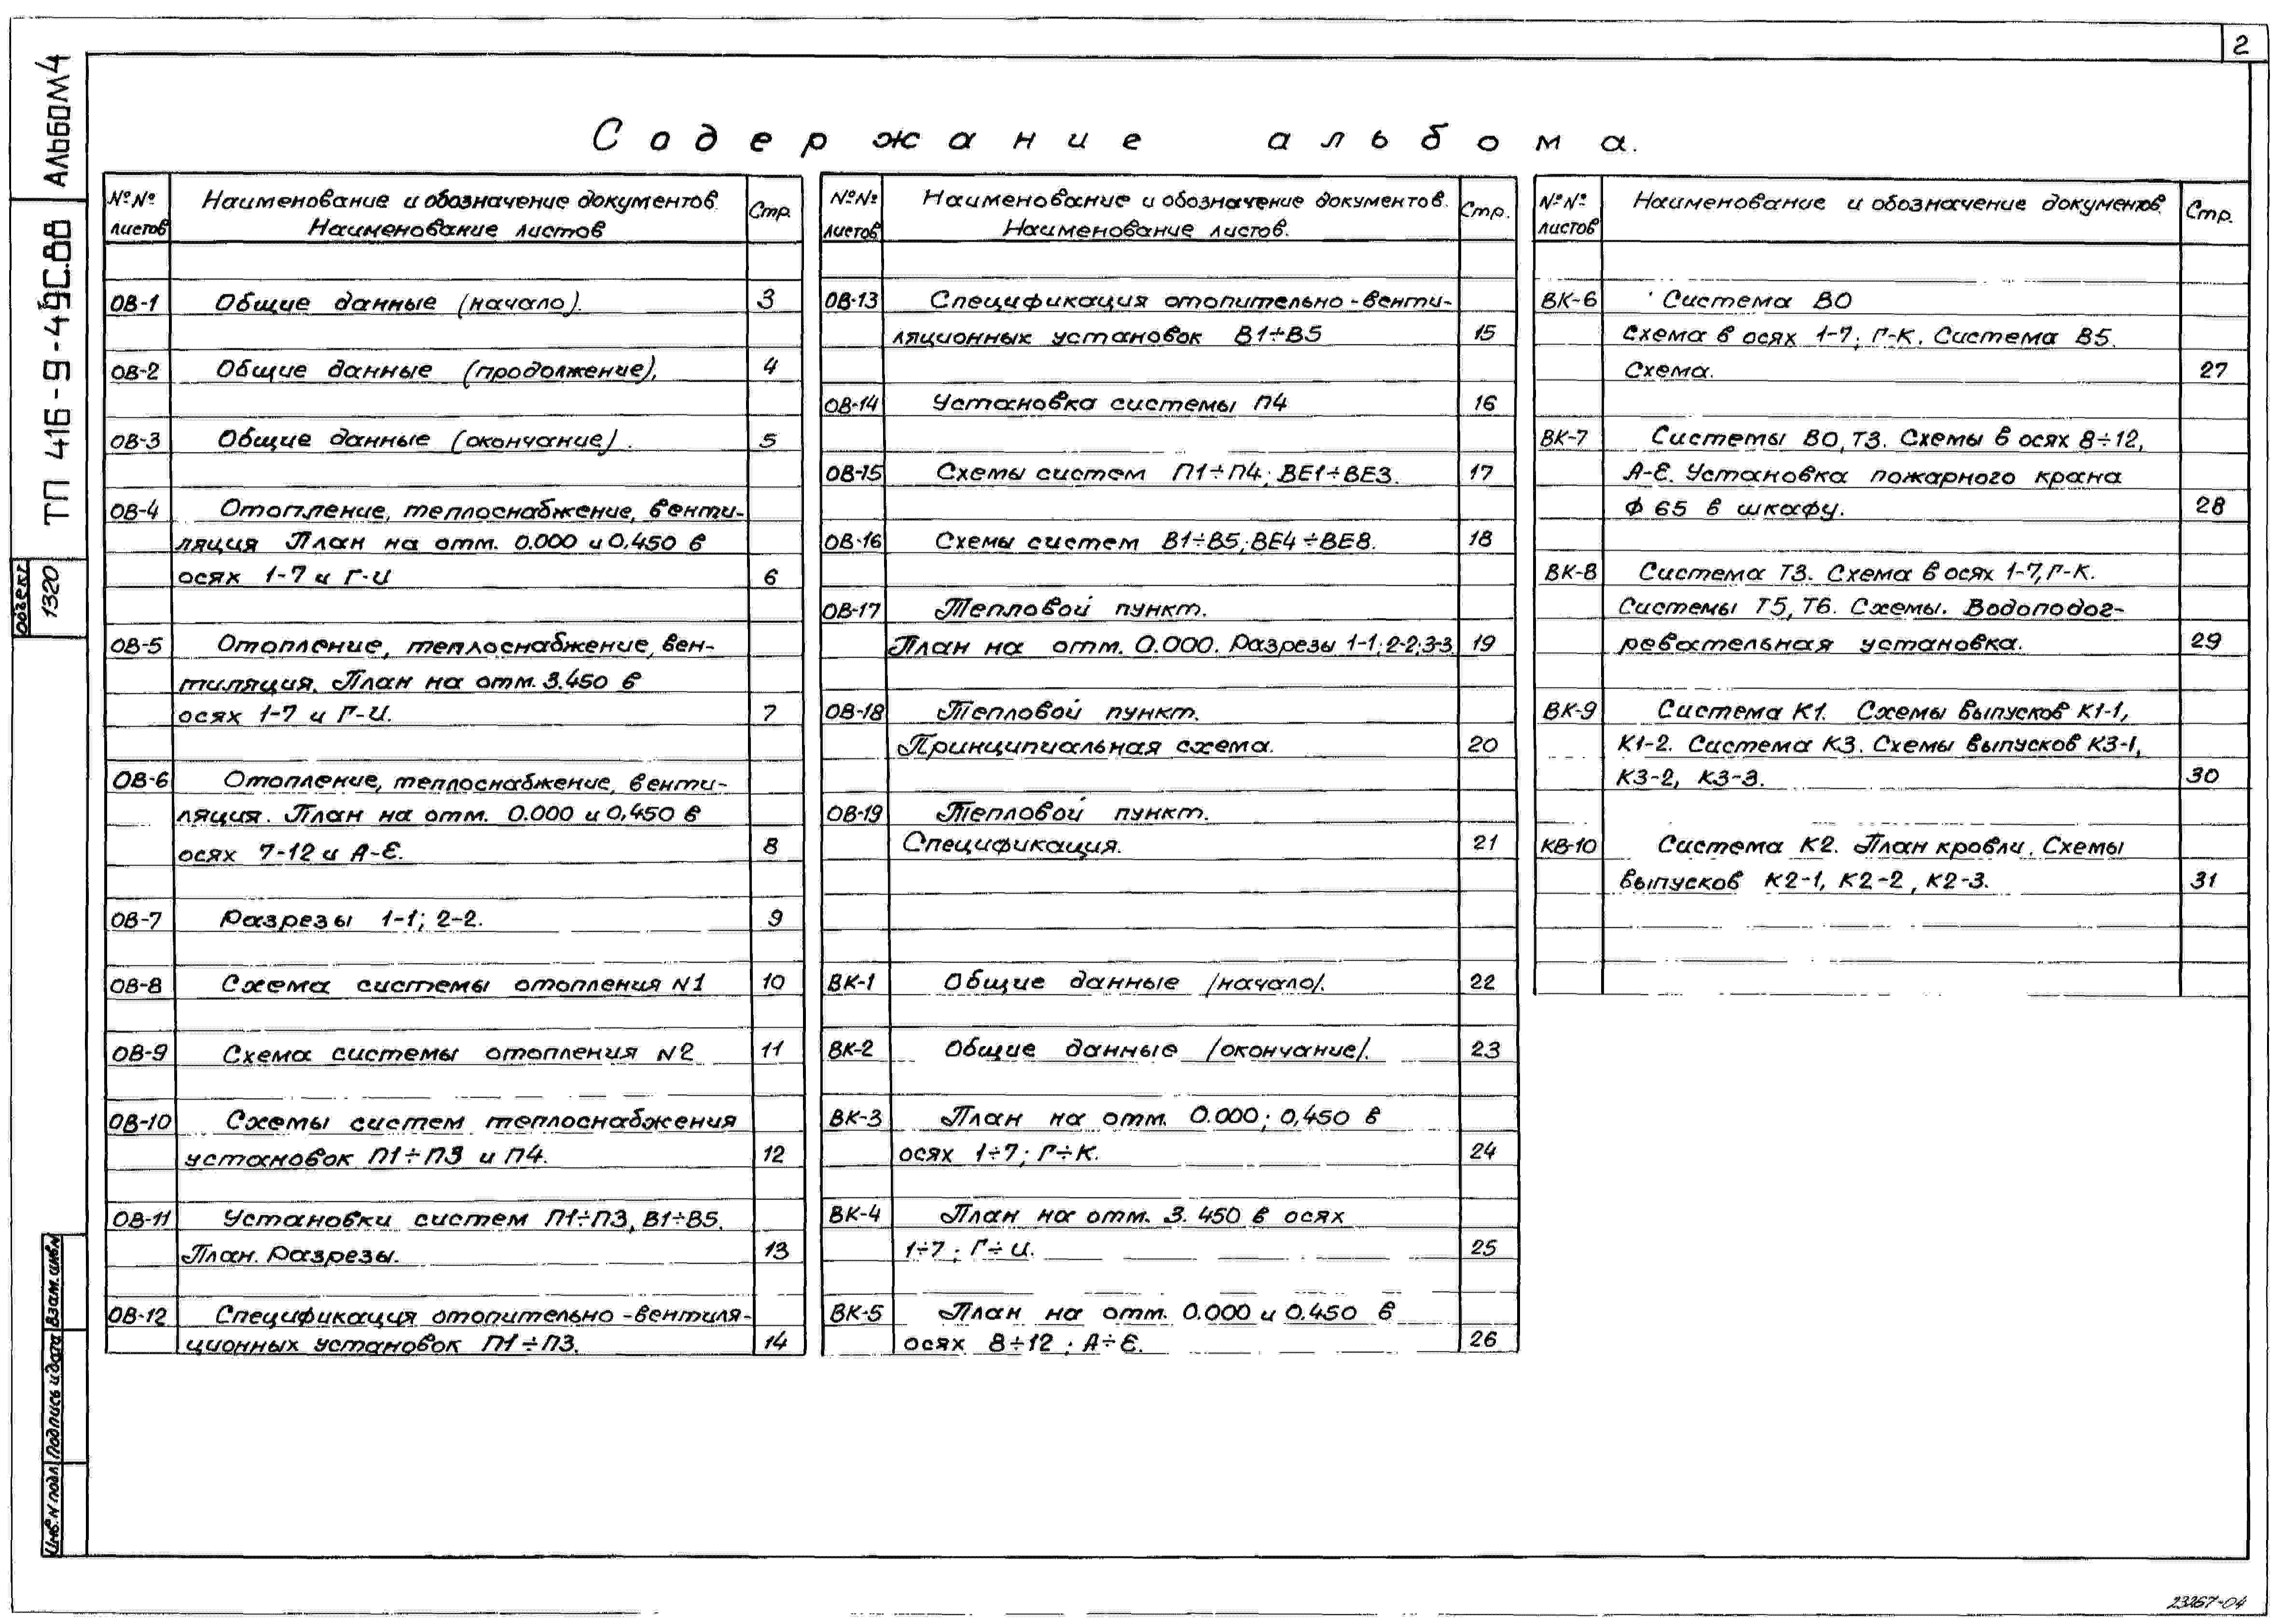 2
Содержание альбома.
АЛЬБОМ 4
ТП 416-9-49С.88
Объект
1320
Взам.инв.N
Подпись и дата
Инв.N подл.
№№ листов
Наименование и обозначение документов.
Наименование листов
Стр.
ОВ-1 Общие данные (начало). 3
ОВ-2 Общие данные (продолжение). 4
ОВ-3 Общие данные (окончание). 5
ОВ-4 Отопление, теплоснабжение, венти-
ляция План на отм. 0.000 и 0,450 в
осях 1-7 и Г-И 6
ОВ-5 Отопление, теплоснабжение, вен-
тиляция. План на отм. 3.450 в
осях 1-7 и Г-И. 7
ОВ-6 Отопление, теплоснабжение, венти-
ляция. План на отм. 0.000 и 0,450 в
осях 7-12 и А-Е. 8
ОВ-7 Разрезы 1-1; 2-2. 9
ОВ-8 Схема системы отопления N1 10
ОВ-9 Схема системы отопления N2 11
ОВ-10 Схемы систем теплоснабжения
установок П1÷П3 и П4. 12
ОВ-11 Установки систем П1÷П3, В1÷В5.
План. Разрезы. 13
ОВ-12 Спецификация отопительно-вентиля-
ционных установок П1÷П3. 14
№№ листов
Наименование и обозначение документов.
Наименование листов.
Стр.
ОВ-13 Спецификация отопительно-венти-
ляционных установок В1÷В5 15
ОВ-14 Установка системы П4 16
ОВ-15 Схемы систем П1÷П4; ВЕ1÷ВЕ3. 17
ОВ-16 Схемы систем В1÷В5; ВЕ4÷ВЕ8. 18
ОВ-17 Тепловой пункт.
План на отм. 0.000. Разрезы 1-1; 2-2; 3-3. 19
ОВ-18 Тепловой пункт.
Принципиальная схема. 20
ОВ-19 Тепловой пункт.
Спецификация. 21
ВК-1 Общие данные /начало/. 22
ВК-2 Общие данные /окончание/. 23
ВК-3 План на отм. 0.000; 0,450 в
осях 1÷7; Г÷К. 24
ВК-4 План на отм. 3.450 в осях
1÷7; Г÷И. 25
ВК-5 План на отм. 0.000 и 0.450 в
осях 8÷12; А÷Е. 26
№№ листов
Наименование и обозначение документов.
Стр.
ВК-6 Система В0
Схема в осях 1-7; Г-К. Система В5.
Схема. 27
ВК-7 Системы В0, Т3. Схемы в осях 8÷12,
А-Е. Установка пожарного крана
Ф 65 в шкафу. 28
ВК-8 Система Т3. Схема в осях 1-7, Г-К.
Системы Т5, Т6. Схемы. Водоподог-
ревательная установка. 29
ВК-9 Система К1. Схемы выпусков К1-1,
К1-2. Система К3. Схемы выпусков К3-1,
К3-2, К3-3. 30
КВ-10 Система К2. План кровли. Схемы
выпусков К2-1, К2-2, К2-3. 31
23267-04